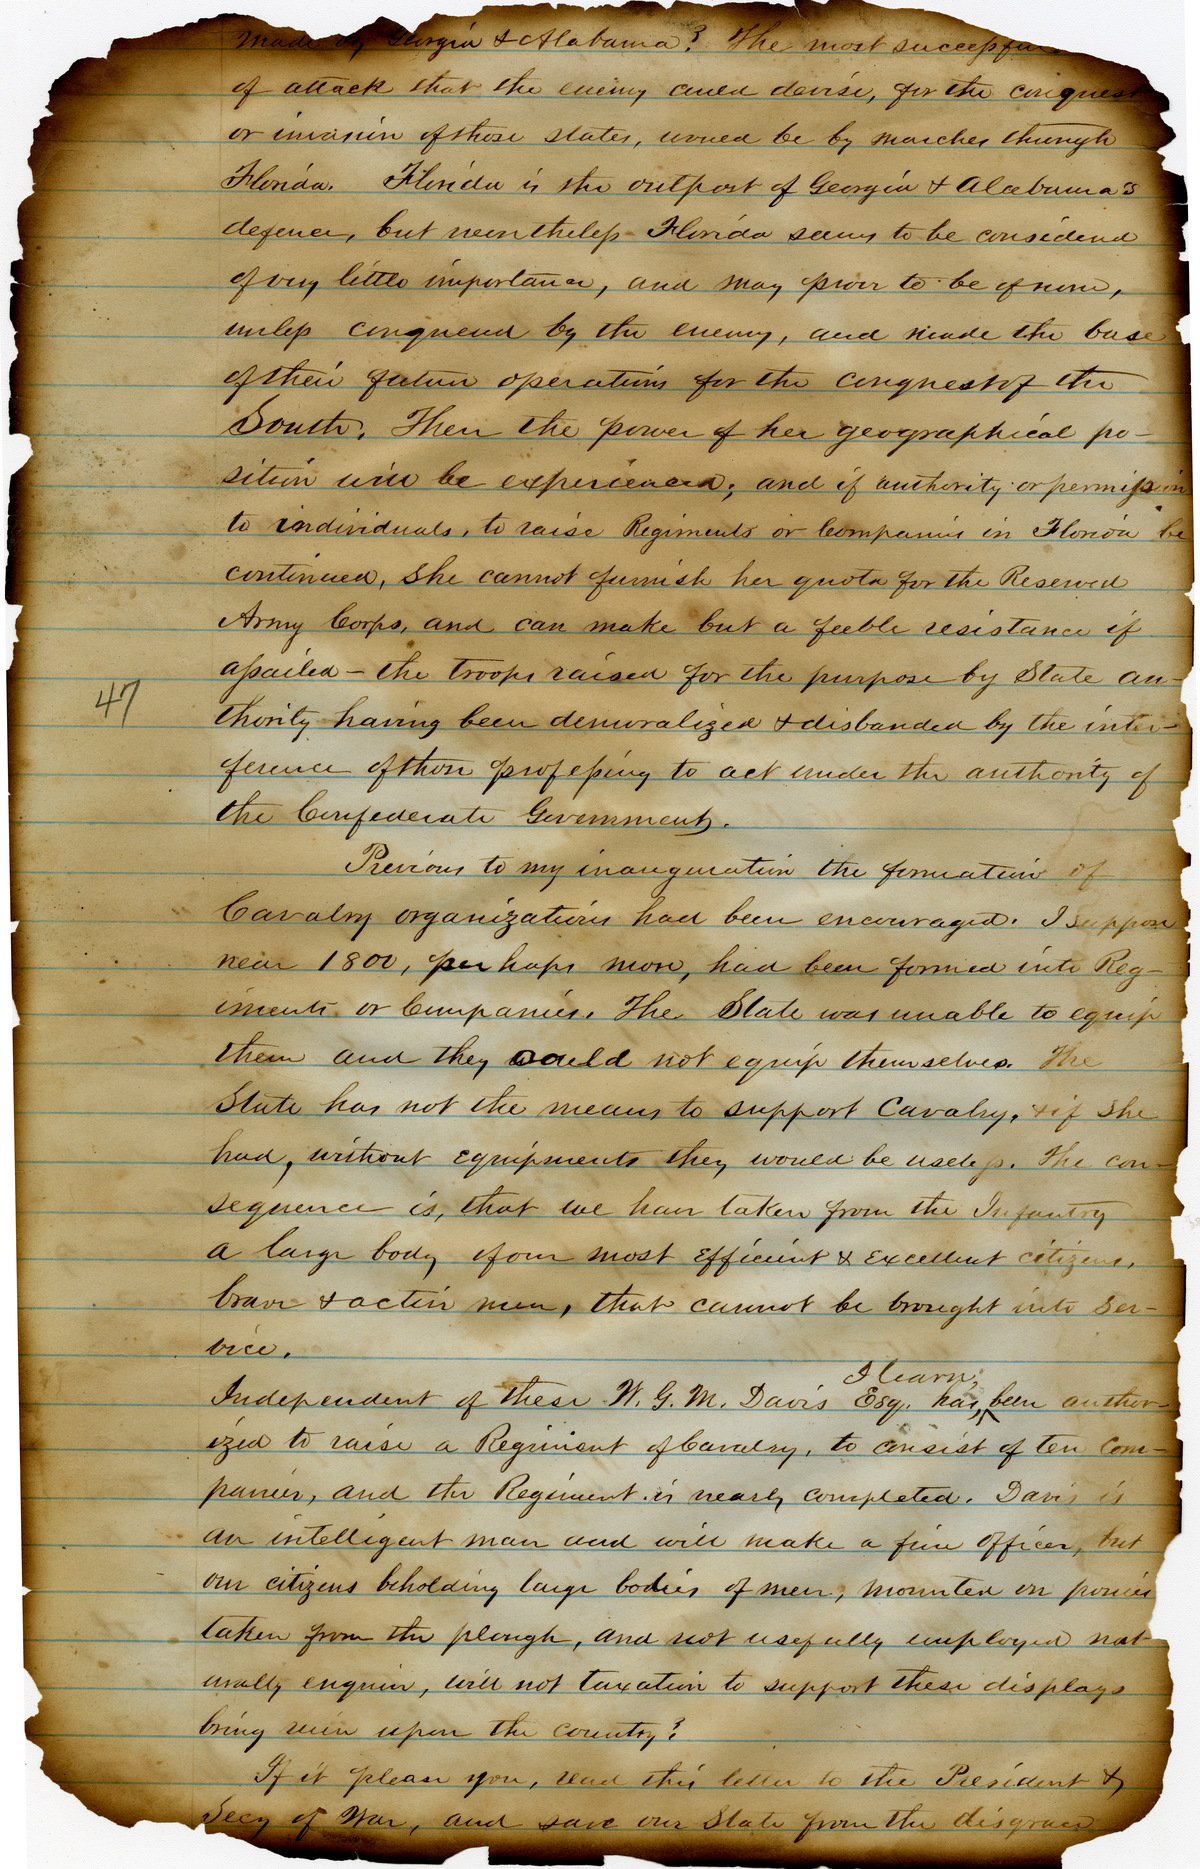 made by Georgia & Alabama? The most successful
of attack that the enemy could devise, for the conquest
or invasion of those states, would be by marches through
Florida. Florida is the outpost of Georgia & Alabama's
defence, but nevertheless Florida seems to be considered
of very little importance, and may prove to be of none,
unless conquered by the enemy, and made the base
of their future operations for the conquest of the
South. Then the power of her geographical po-
sition will be experienced; and if authority or permission
to individuals, to raise Regiments or Companies in Florida be
continued, she cannot furnish her quota for the Reserved
Army Corps, and can make but a feeble resistance if
assailed - the troops raised for the purpose by State au-
47
thority having been demoralized & disbanded by the inter-
ference of those professing to act under the authority of
the Confederate Government.
Previous to my inauguration the formation of
Cavalry organizations had been encouraged. I suppose
near 1800, perhaps more, had been formed into Reg-
iments or Companies. The State was unable to equip
them and they could not equip themselves. The
State has not the means to support Cavalry, & if she
had, without equipments they would be useless. The con-
sequence is, that we have taken from the Infantry
a large body of our most efficient & excellent citizens,
brave & active men, that cannot be brought into ser-
vice.
I learn,
Independent of these W. G. M. Davis Esq. has, been author-
ized to raise a Regiment of Cavalry, to consist of ten Com-
panies, and the Regiment is nearly completed. Davis is
an intelligent man and will make a fine officer, but
our citizens beholding large bodies of men, mounted on ponies
taken from the plough, and not usefully employed nat-
urally enquire, will not taxation to support these displays
bring ruin upon the country?
If it please you, read this letter to the President &
Secy of War, and save our State from the disgrace